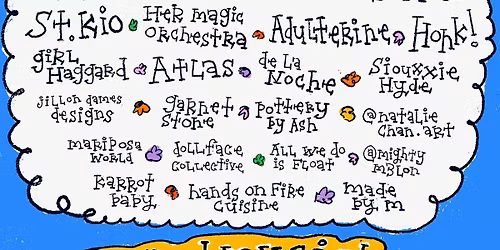 St. Kio
Her Magic
Orchestra
Adulterine
Honk!
Girl
Haggard
Atlas
de La
Noche
Siouxxie
Hyde
designs
Garnet
Stone
Pottery
By Ash
@natalie
chan.art
mariposa
World
dollface
Collective
All We do
is Float
@mighty
m3lon
karrot
baby
hands on Fire
Cuisine
made
by m